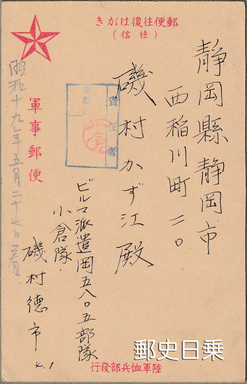 郵便往復はがき
(往信)
軍事郵便
静岡縣静岡市
西稲川町二〇
磯村かず江殿
査閲者
ビルマ派遣岡五八〇五部隊
小倉隊
磯村徳市
昭和十九年五月二十七日着
陸軍恤兵部發行
郵史日乗